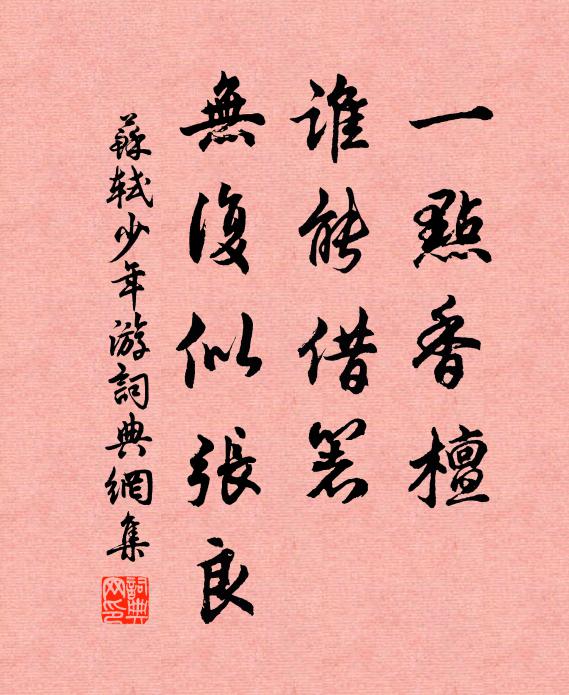 一點香檀
誰能借箸
無復似張良
蘇軾少年游詞典網集
詞典網印